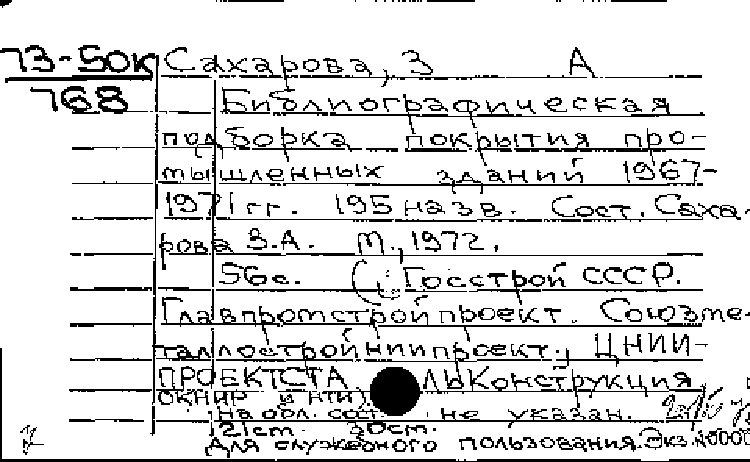 73-50к Сахарова, З А
768 Библиографическая
подборка покрытия про-
мышленных зданий 1967-
1971 гг. 195 назв. Сост. Саха-
рова З.А. М., 1972.
56с. Госстрой СССР.
Главпромстройпроект. Союзме-
таллостройниипроект., ЦНИИ-
ПРОЕКТСТАЛЬКонструкция,
ОКНИР и НТИ)
на обл. сост. не указан.
21 см. 30 см.
Для служебного пользования. Экз.